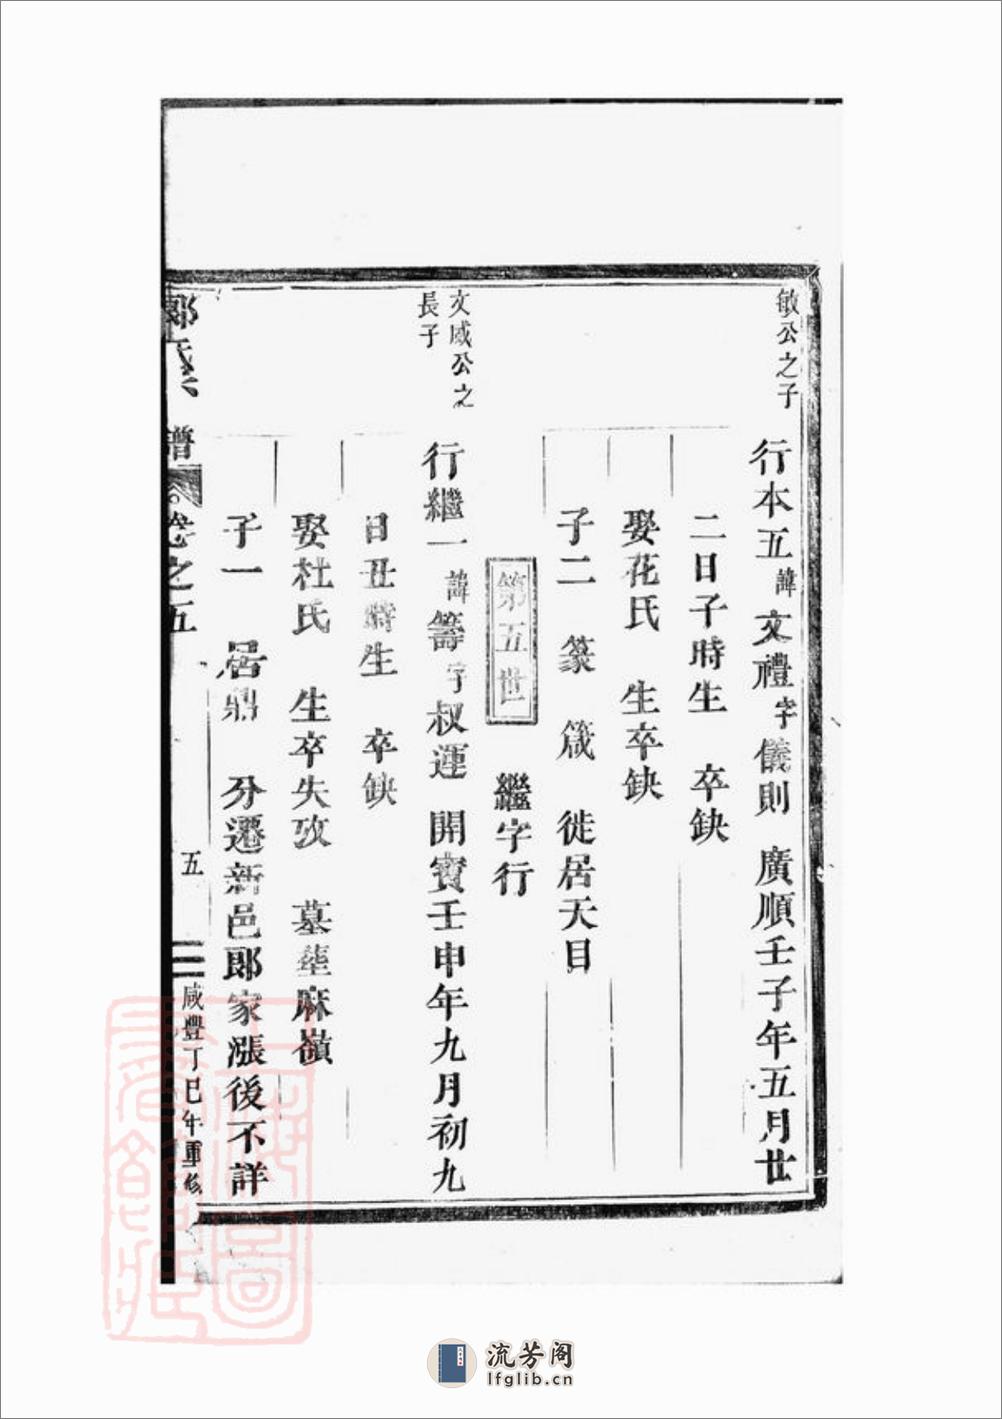 敏公之子
行本五諱文禮字儀則 廣順壬子年五月廿
二日子時生 卒鈌
娶花氏 生卒鈌
子二 篆 箴 徙居天目
第五世 繼字行
文咸公之
長子
行繼一諱籌字叔運 開寶壬申年九月初九
日丑時生 卒鈌
娶杜氏 生卒失攷 墓塟麻嶺
子一 居鼎 分遷新邑郎家漲後不詳
郎氏宗譜 卷之五 五 咸豐丁巳年重修
流芳阁
lfglib.cn